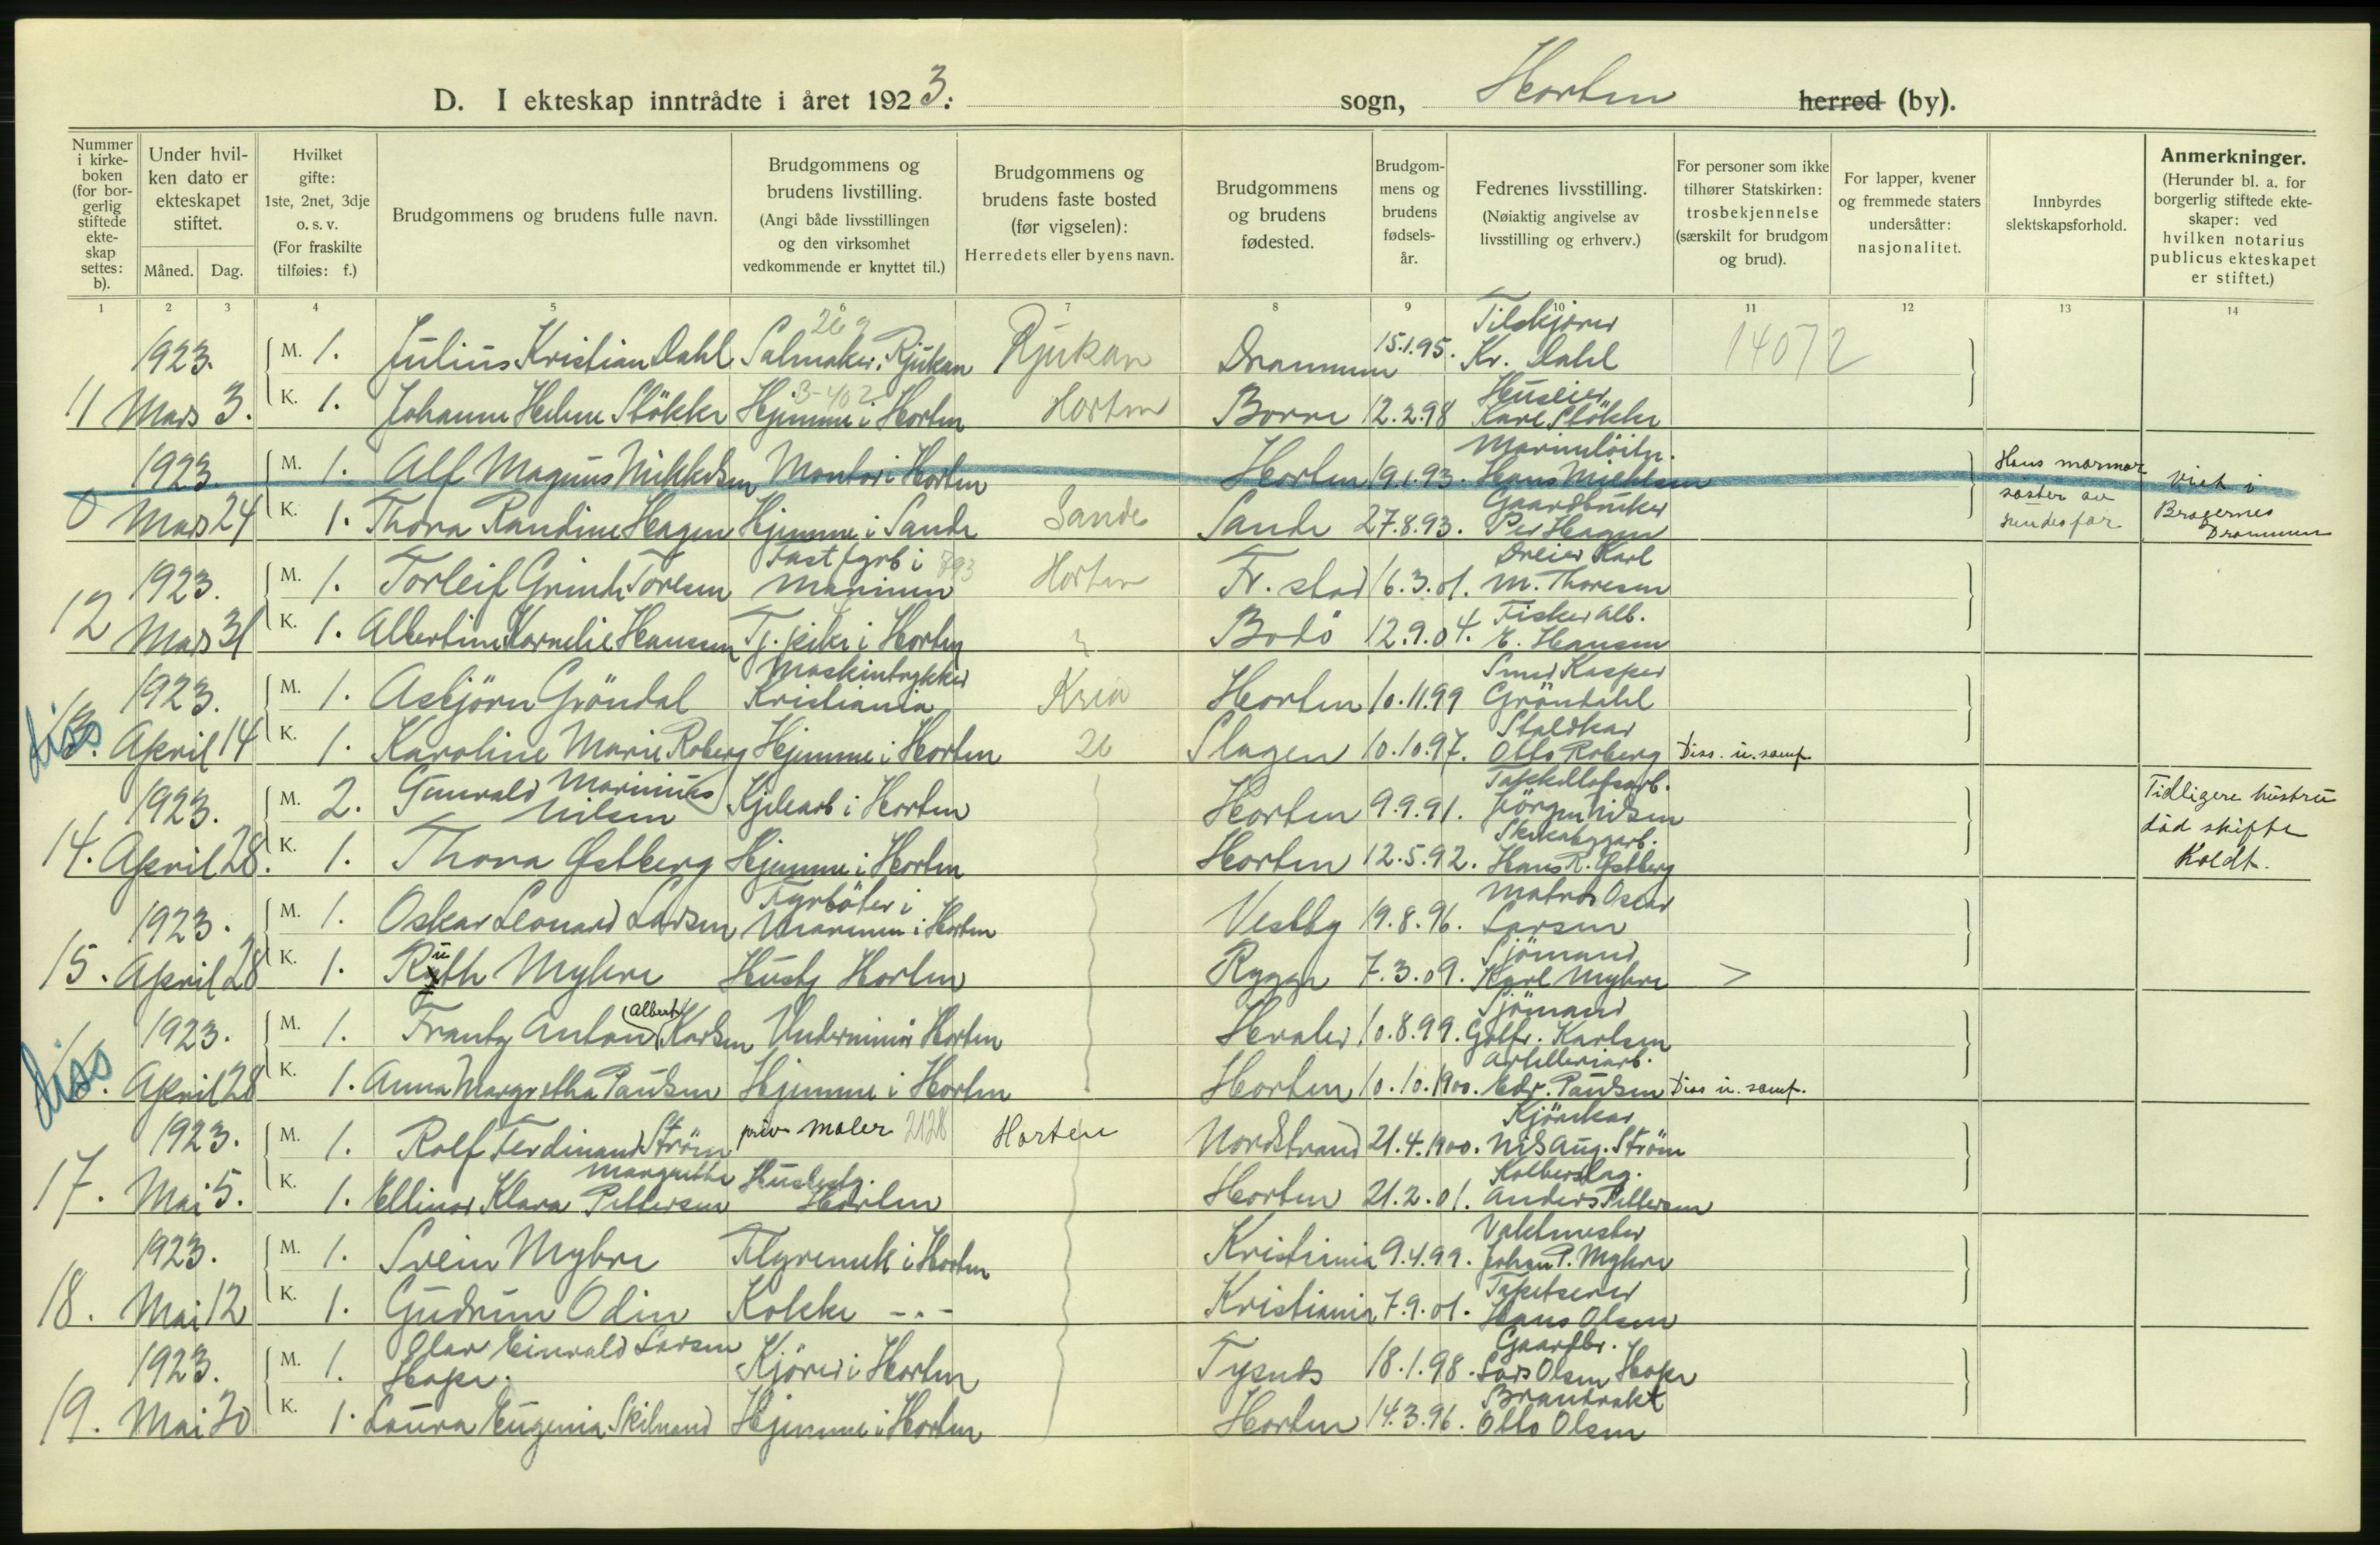 D. I ekteskap inntrådte i året 1923. sogn, Horten herred (by).
Nummer i kirkeboken (for borgerlig stiftede ekteskap settes: b).
Under hvilken dato er ekteskapet stiftet.
Måned. Dag.
Hvilket gifte: 1ste, 2net, 3dje o. s. v. (For fraskilte tilføies: f.)
Brudgommens og brudens fulle navn.
Brudgommens og brudens livstilling. (Angi både livsstillingen og den virksomhet vedkommende er knyttet til.)
Brudgommens og brudens faste bosted (før vigselen): Herredets eller byens navn.
Brudgommens og brudens fødested.
Brudgommens og brudens fødselsår.
Fedrenes livsstilling. (Nøiaktig angivelse av livsstilling og erhverv.)
For personer som ikke tilhører Statskirken: trosbekjennelse (særskilt for brudgom og brud).
For lapper, kvener og fremmede staters undersåtter: nasjonalitet.
Innbyrdes slektskapsforhold.
Anmerkninger. (Herunder bl. a. for borgerlig stiftede ekteskaper: ved hvilken notarius publicus ekteskapet er stiftet.)
1 2 3 4 5 6 7 8 9 10 11 12 13 14
1923. M. 1. Julius Kristian Dahl Salmaker, Rjukan Rjukan Drammen 15.1.95. Tilskjærer Kr. Dahl 14072
11 Mars 3. K. 1. Johanne Helene Støkke Hjemme i Horten Horten Borre 12.2.98 Huseier Karl Støkke
1923. M. 1. Alf Magnus Mikkelsen Montør i Horten Horten 19.1.93. Hans
0 Mars 24 K. 1. Thora Randine Hagen Hjemme i Sande Sande Sande 27.8.93. Gaardbruker Per Hagen Hans mormor søster av hendes far Viet i Bragernes Drammen
1923. M. 1. Torleif Toresen Fast fyrb i Marinen 793 Horten Fr. stad 16.3.01. Dreier Karl M. Thoresen
12 Mars 31 K. 1. Albertine Kornelie Hansen Tj. pike i Horten Bodö 12.9.04. Fisker Alb. E. Hansen
1923. M. 1. Asbjörn Gröndal Maskintrykker Kristiania Kria Horten 10.11.99 Smed Kasper Gröndahl
diss 13. April 14 K. 1. Karoline Marie Roberg Hjemme i Horten 26 Slagen 10.10.97. Staldkar Otto Roberg Diss. u. samf.
1923. M. 2. Gunvald Marinius Nilsen Kjelearb i Horten Horten 9.9.91. Jörgen Nilsen Tidligere hustru
14. April 28. K. 1. Thora Østberg Hjemme i Horten Horten 12.5.92. Hans R. Østberg död skifte Koldt.
1923. M. 1. Oskar Leonard Larsen Fyrböter i Marinen i Horten Vestby 19.8.96. Matros Oscar Larsen
15. April 28 K. 1. Ruth Myhre Hustj Horten Rygge 7.3.09. Sjömand Karl Myhre >
1923. M. 1. Frantz Anton (Albert) Karlsen Underminör Horten Hvaler 10.8.99. Sjömand Golfr. Karlsen
diss 16. April 28 K. 1. Anna Margretha Paulsen Hjemme i Horten Horten 10.10.1900. Artilleriarb. Edv. Paulsen Diss u. samf.
1923. M. 1. Rolf Ferdinand Ström priv maler 2128 Horten Nordstrand 21.4.1900. Nils Aug. Ström
17. Mai 5. K. 1. Ellinor Klara Margrethe Pettersen Hustj. Horten Horten 21.2.01. Anders Pettersen
1923. M. 1. Svein Myhre Flyvemek i Horten Kristiania 9.4.99. Vaktmester Johan P. Myhre
18. Mai 12 K. 1. Gudrun Odin Kokke -"- Kristiania 7.9.01. Tapetserer Hans Olsen
1923. M. 1. Olav Einvald Larsen Hope. Kjörer i Horten Tysnes 18.1.98. Gaardbr. Lars Olsen Hope
19. Mai 20 K. 1. Laura Eugenia Skilnand Hjemme i Horten Horten 14.3.96. Brandvakt Otto Olsen